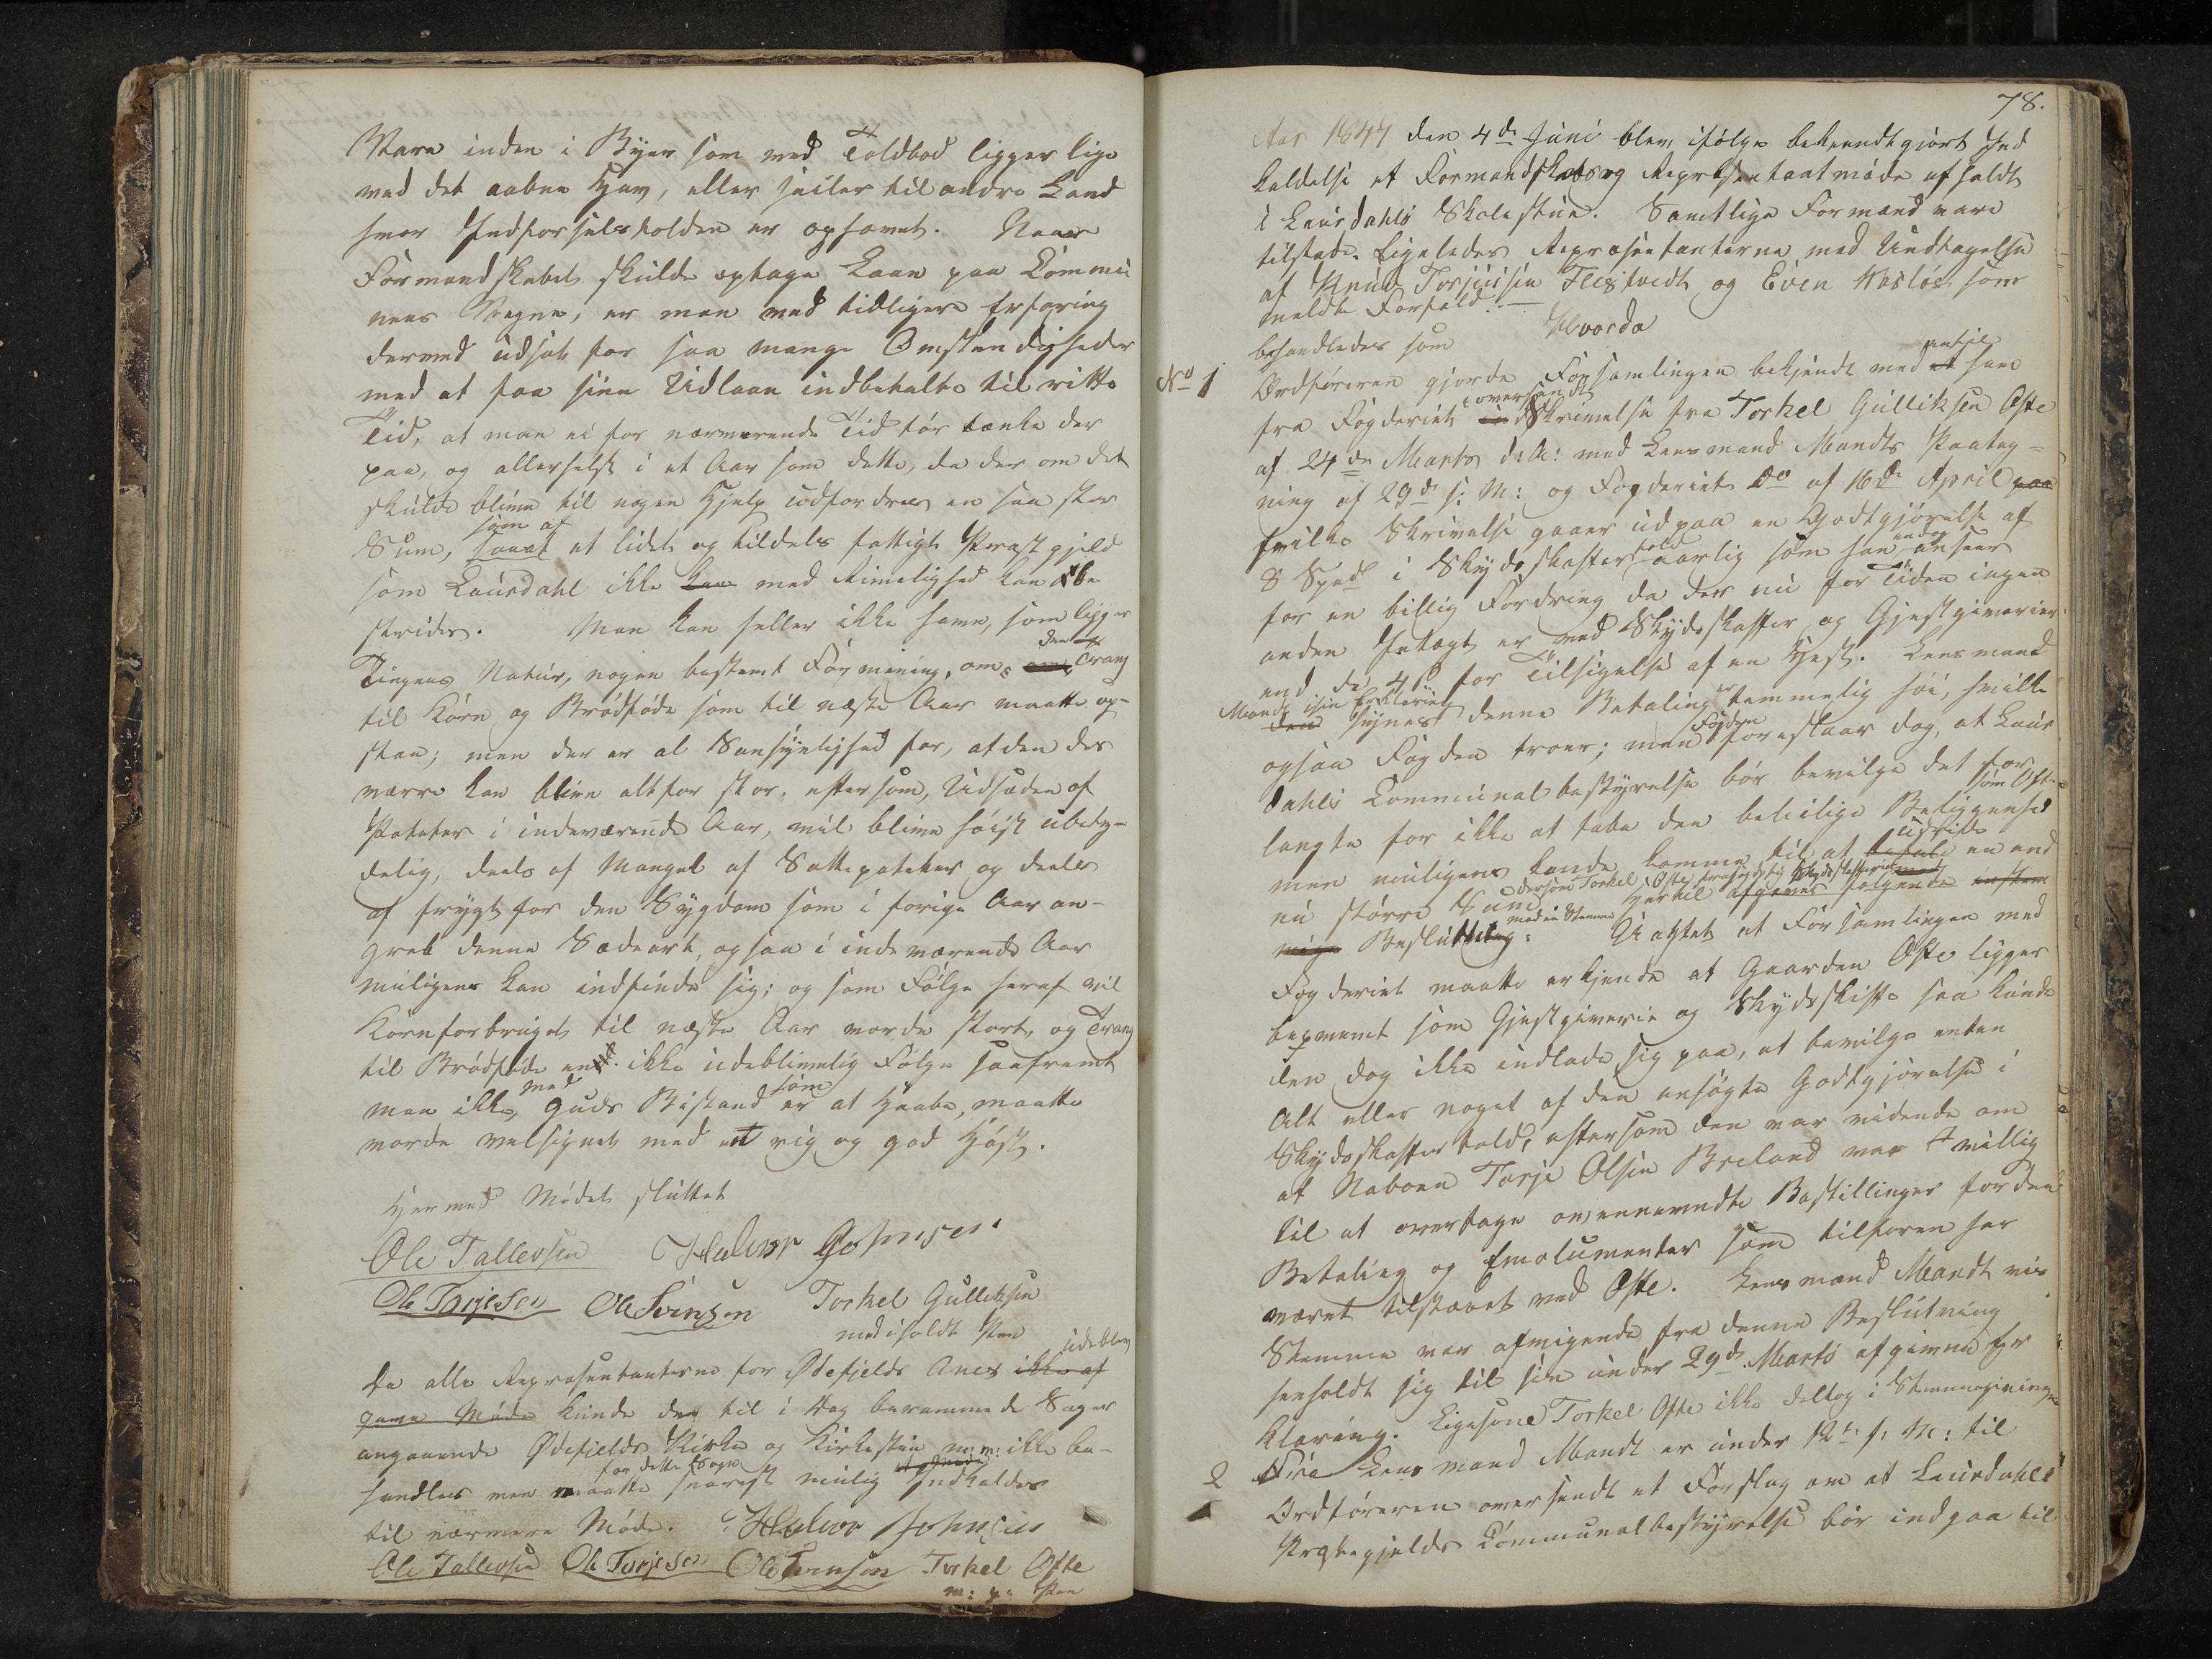 Vare inden i Byer som med Toldbod ligger lige
ved det aabne Hav, eller seiler til andre Land
hvor Indførselstolden er ophævet. Naar
Formandskabet skulde optage Laan paa Commu
nens Vegne, er man med tidligere Erfaring
dermed udsat for saa mange Omstændigheder
med at faa sine Udlaan indbetalte til rette
Tid, at man ei for nærværende Tid tør tænke der
paa, og allerhelst i et Aar som dette, da der om det
skulde blive til nogen Hjelp udfordres en saa stor
Sum, som af et lidet og tildels fattigt Præstgjeld
som Laurdahl ikke med Rimelighed kan be
strides. Man kan heller ikke have, som ligger i
Tingens Natur, nogen bestemt Formening, om den Trang
til Korn og Brødføde som til næste Aar maatte op-
staa; men der er al Sansynlighed for, at den des
værre kan blive altfor stor, eftersom, Udsæden af
Poteter i indeværende Aar, vil blive høist ubety-
delig, deels af Mangel af Sættepoteter og deels
af frygt for den Sygdom som i forige Aar an-
greb denne Sædeart, ogsaa i indeværende Aar
muligens kan indfinde sig; og som Følge heraf vil
Kornforbruget til næste Aar vorde stort, og Trang
til Brødføde en ikke udeblivelig Følge saafremt
man ikke, med Guds Bistand som er at haabe, maatte
vorde velsignet med et rig og god Høst.
Hermed Mødet sluttet
Ole Tallevsen Halvor Johnsen
Ole Torjesen Ole Svensen Torkel Gulliksen
med iholdt Pen
Da alle Repræsentanterne for Ødefjelds Anex ikke af udeblev
gave Møde kunde der til i Dag berammede Sager
angaaende Ødefjelds Kirke og Kirkestue m: m: ikke be-
handles men maatte for dette Sogn snarest mulig Indkaldes
til nærmere Møde. Halvor Johnsen
Ole Tallevsen Ole Torjesen Ole Svensen Torkel Ofte
m: p: Pen
78.
Aar 1847 den 4de Juni blev ifølge bekjendtgjort Ind
kaldelse et Formandskabs og Repræsentantmøde afholdt
i Laurdahls Skolestue. Samtlige Formænd vare
tilstede. Ligeledes Repræsentanterne med Undtagelse
af Knud Torjussen Fleistvedt og Even som
meldte Forfald. — Hvorda
behandledes som
No 1 Ordføreren gjorde Forsamlingen bekjendt med en til ham
fra Fogderiet oversendt Skrivelse fra Torkel Gulliksen Ofte
af 24de Marts d: A: med Lensmand Mandts Paateg-
ning af 29de s: M: og Fogderiets Do af 16de April paa
hvilke Skrivelse gaaer ud paa en Godtgjørelse af
8 Spd i Skydsskafferhold aarlig som han anseer
for en billig Fordring da der nu for Tiden ingen
anden Indtægt er ved Skydsskaffer og Gjestgiverier
end de 4 s for Tilsigelse af en Hest. Lensmand
Mandt i sin Erklæring synes denne Betaling er temmelig høi, hvilke
ogsaa Fogden troer; men Fogden foreslaar dog, at Laur
dahls Communalbestyrelse bør bevilge det for
langte for ikke at tabe den beleilige Beliggenhed som Ofte
men muligens kunde komme til at udrede en end
nu større Sum dersom Torkel Ofte frasagde sig Skydsskafferiet Hertil afgaves følgende eenstem
mige Beslutning: med een Stemme Uagtet at Forsamlingen med
Fogderiet maatte erkjende at Gaarden Ofte ligger
beqvemt som Gjestgiverie og Skydsskifte saa kunde
den dog ikke indlade sig paa, at bevilge enten
Alt eller noget af den ansøgte Godtgjørelse i
Skydsskafferhold, eftersom den var vidende om
at Naboen Torje Olsen Breland var villig
til at overtage ovennævndte Bestillinger for den
Betaling og Emolumenter som tilforen har
været tilstaaet ved Ofte. Lensmand Mandts
Stemme var afvigende fra denne Beslutning
henholdt sig til sin under 29de Marts afgivne Er
klæring. Ligesom Torkel Ofte ikke deltog i Stemmegivningen
2 Fra Lensmand Mandt er under 12te f: M: til
Ordføreren oversendt et Forslag om at Laurdahls
Præstegjelds Communalbestyrelse bør indgaa til